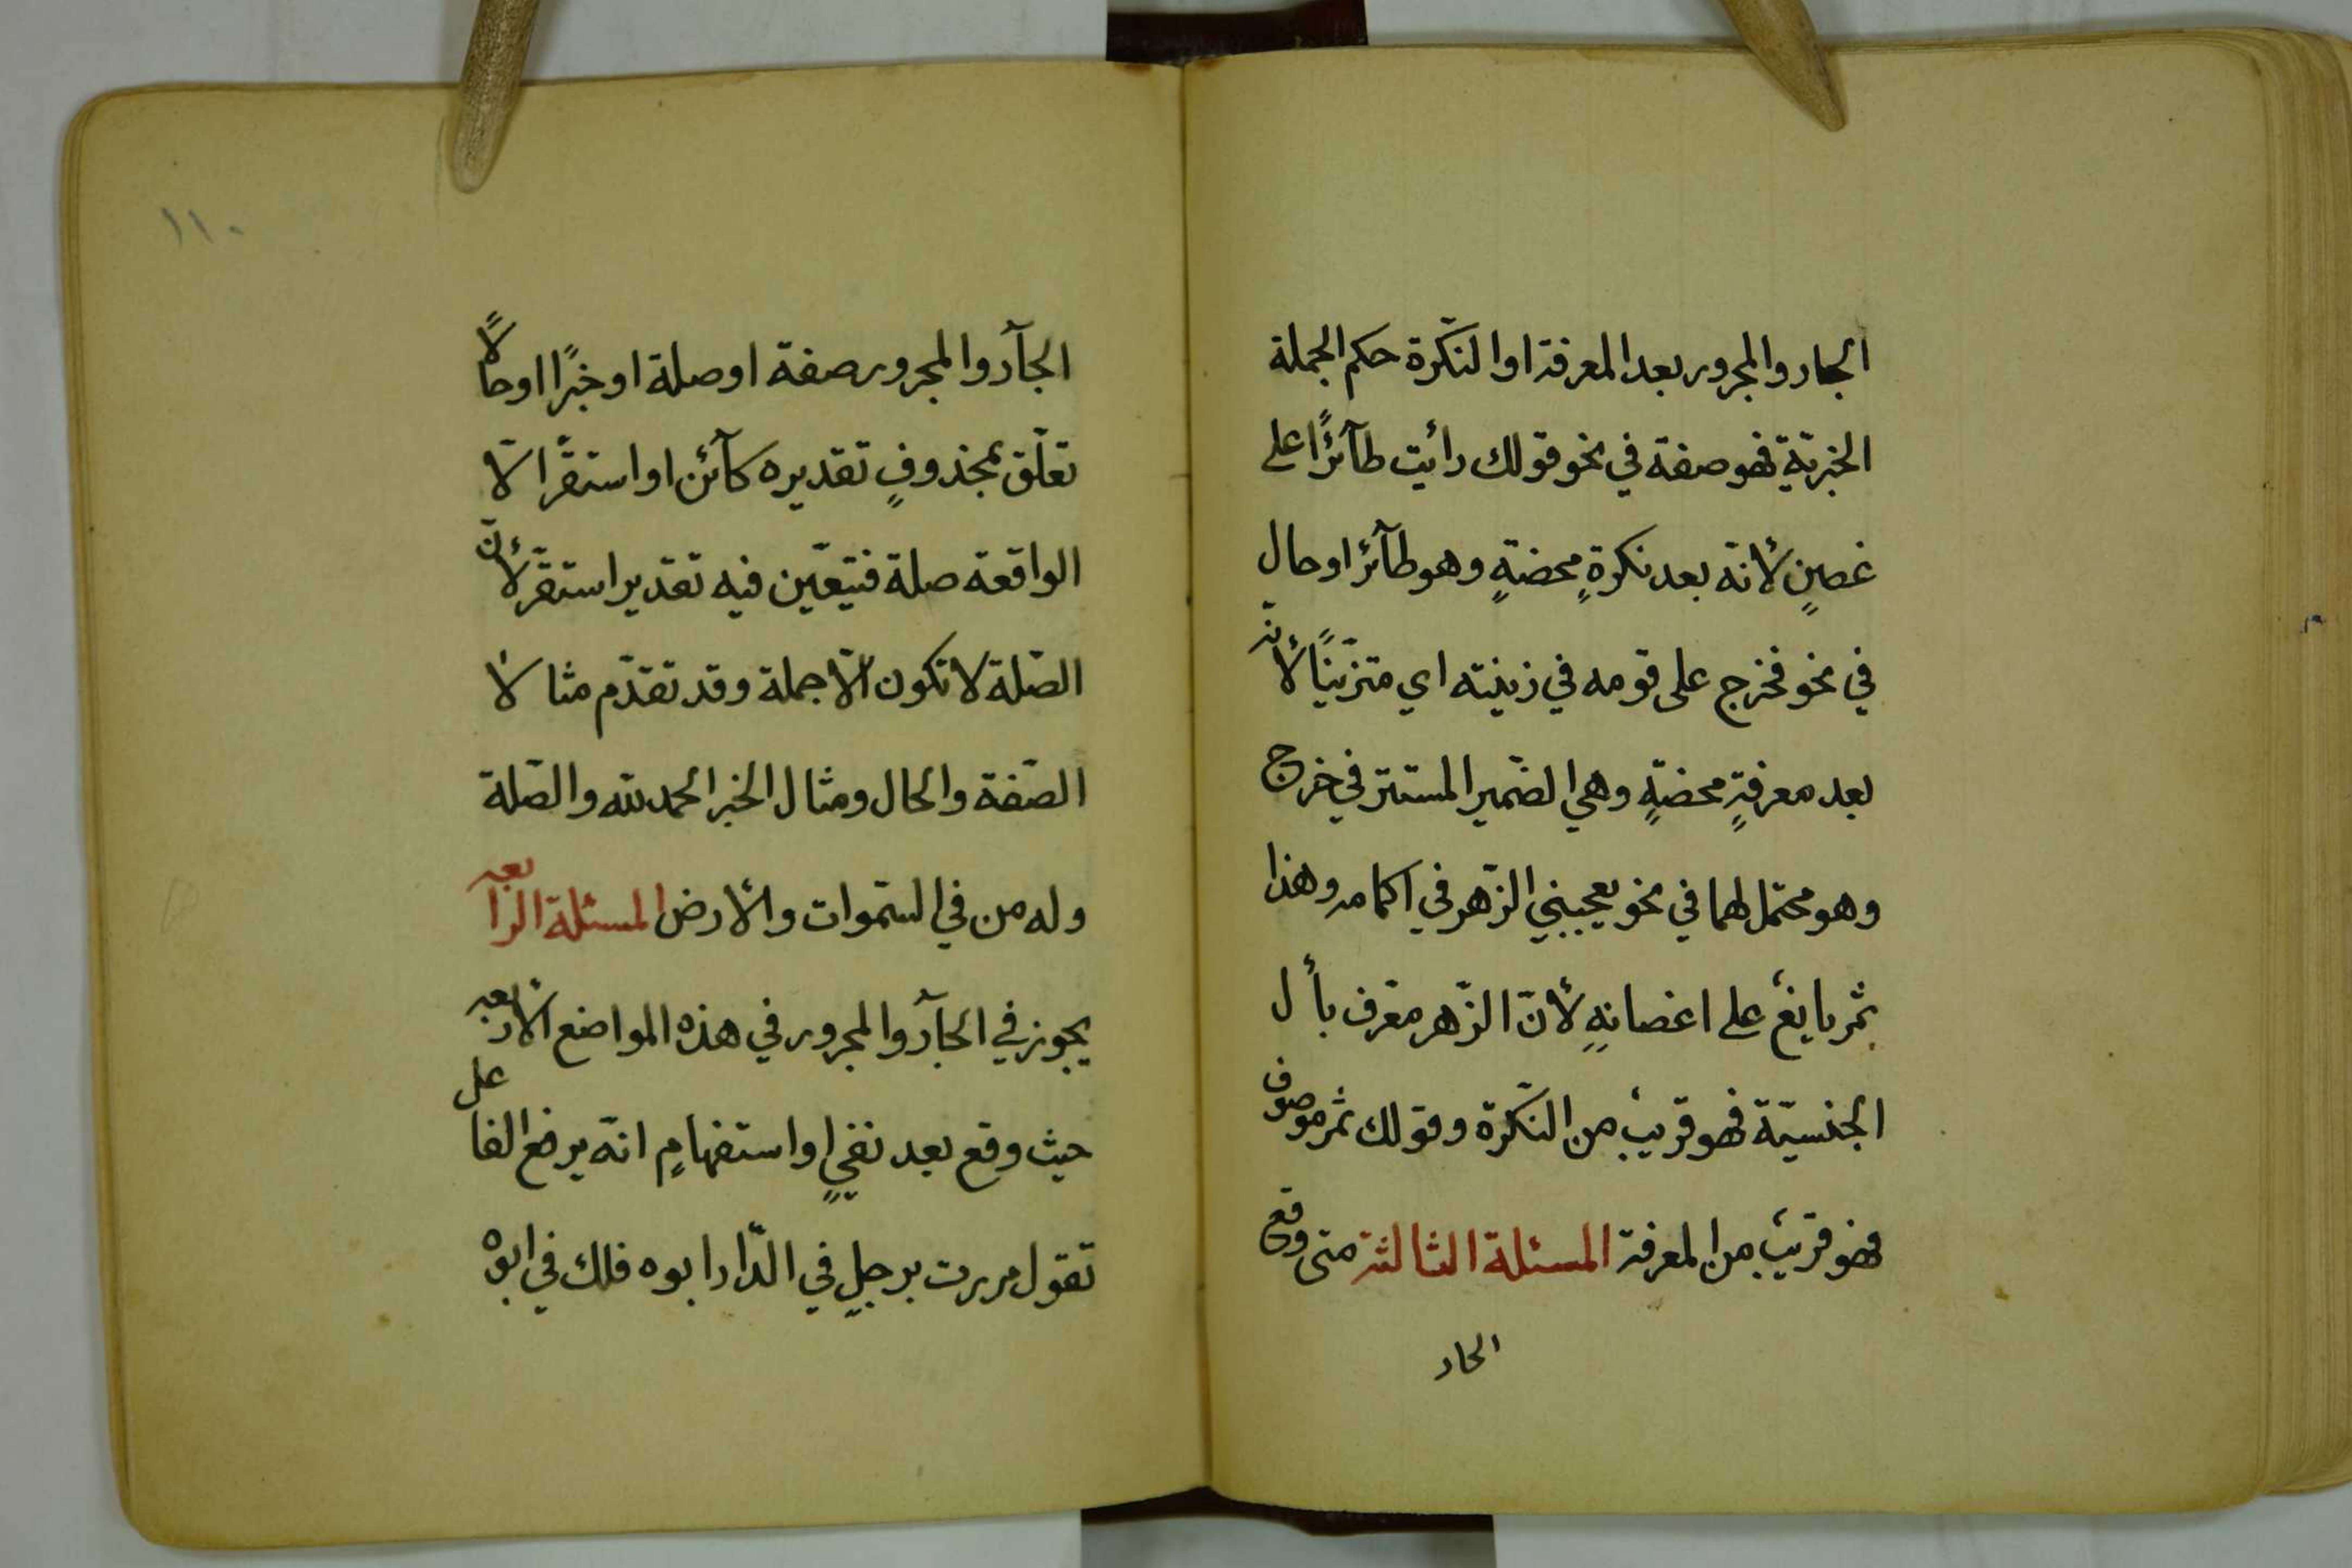 الجار والمجرور بعد المعرفة او النّكرة حكم الجملة
الخبريّة فهو صفة في نحو قولك رأيت طآئرًا على
غصنٍ لأنّه بعد نكرةٍ محضةٍ وهو طآئرًا وحال
في نحو فخرج على قومه في زينته اي متزيّنًا لأنّه
بعد معرفةٍ محضةٍ وهي الضّمير المستتر في خرج
وهو محتمل لهما في نحو يعجبني الزّهر في اكمامه وهذا
ثمر يانعٌ على اغصانهِ لأنّ الزّهر معرّف بأل
الجنسيّة فهو قريبٌ من النّكرة وقولك ثمر موصوف
فهو قريبٌ من المعرفة المسئلة الثالثة متى وقع
الجار
١١٠
الجآرّ والمجرور صفة او صلة او خبرًا او حالًا
تعلّق بمحذوفٍ تقديره كآئن او استقرّ الّا
الواقعة صلة فيتعيّن فيه تقدير استقرّ لأنّ
الصّلة لا تكون الّا جملة وقد تقدّم مثالا
الصّفة والحال ومثال الخبر الحمد لله والصّلة
وله من في السّموات والأرض المسئلة الرّابعة
يجوز في الجآرّ والمجرور في هذه المواضع الأربعة
حيث وقع بعد نفيٍ او استفهامٍ انّه يرفع الفاعل
تقول مررت برجلٍ في الدّار ابوه فلك في ابوه